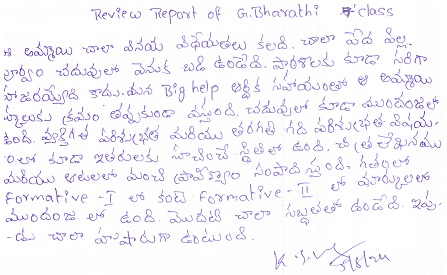 Review Report of G.Bharathi 7 class
ఈ అమ్మాయి చాలా వినయ విధేయతలు కలది. చాలా పేద పిల్ల.
పూర్వం చదువులో వెనుక బడి ఉండేది. పాఠశాలకు కూడా సరిగా
హాజరయ్యేది కాదు. మన Big help ఆర్థిక సహాయంతో ఆ అమ్మాయి
స్కూలుకు క్రమం తప్పకుండా వస్తుంది. చదువులో కూడా ముందంజలో
ఉంది. వ్యక్తిగత పరిశుభ్రత మరియు తరగతి గది పరిశుభ్రత విషయ-
౦లో కూడా ఇతరులకు సూచించే స్థితిలో ఉంది. చిత్రలేఖనము
మరియు ఆటలలో మంచి ప్రావీణ్యం సంపాదిస్తుంది. గతంలో
Formative-I లో కంటే Formative-II లో మార్కులలో
ముందంజ లో ఉంది. మొదటి చాలా సబ్ధతతో ఉండేది. ఇప్పు-
-డు చాలా హుషారుగా ఉంటుంది.